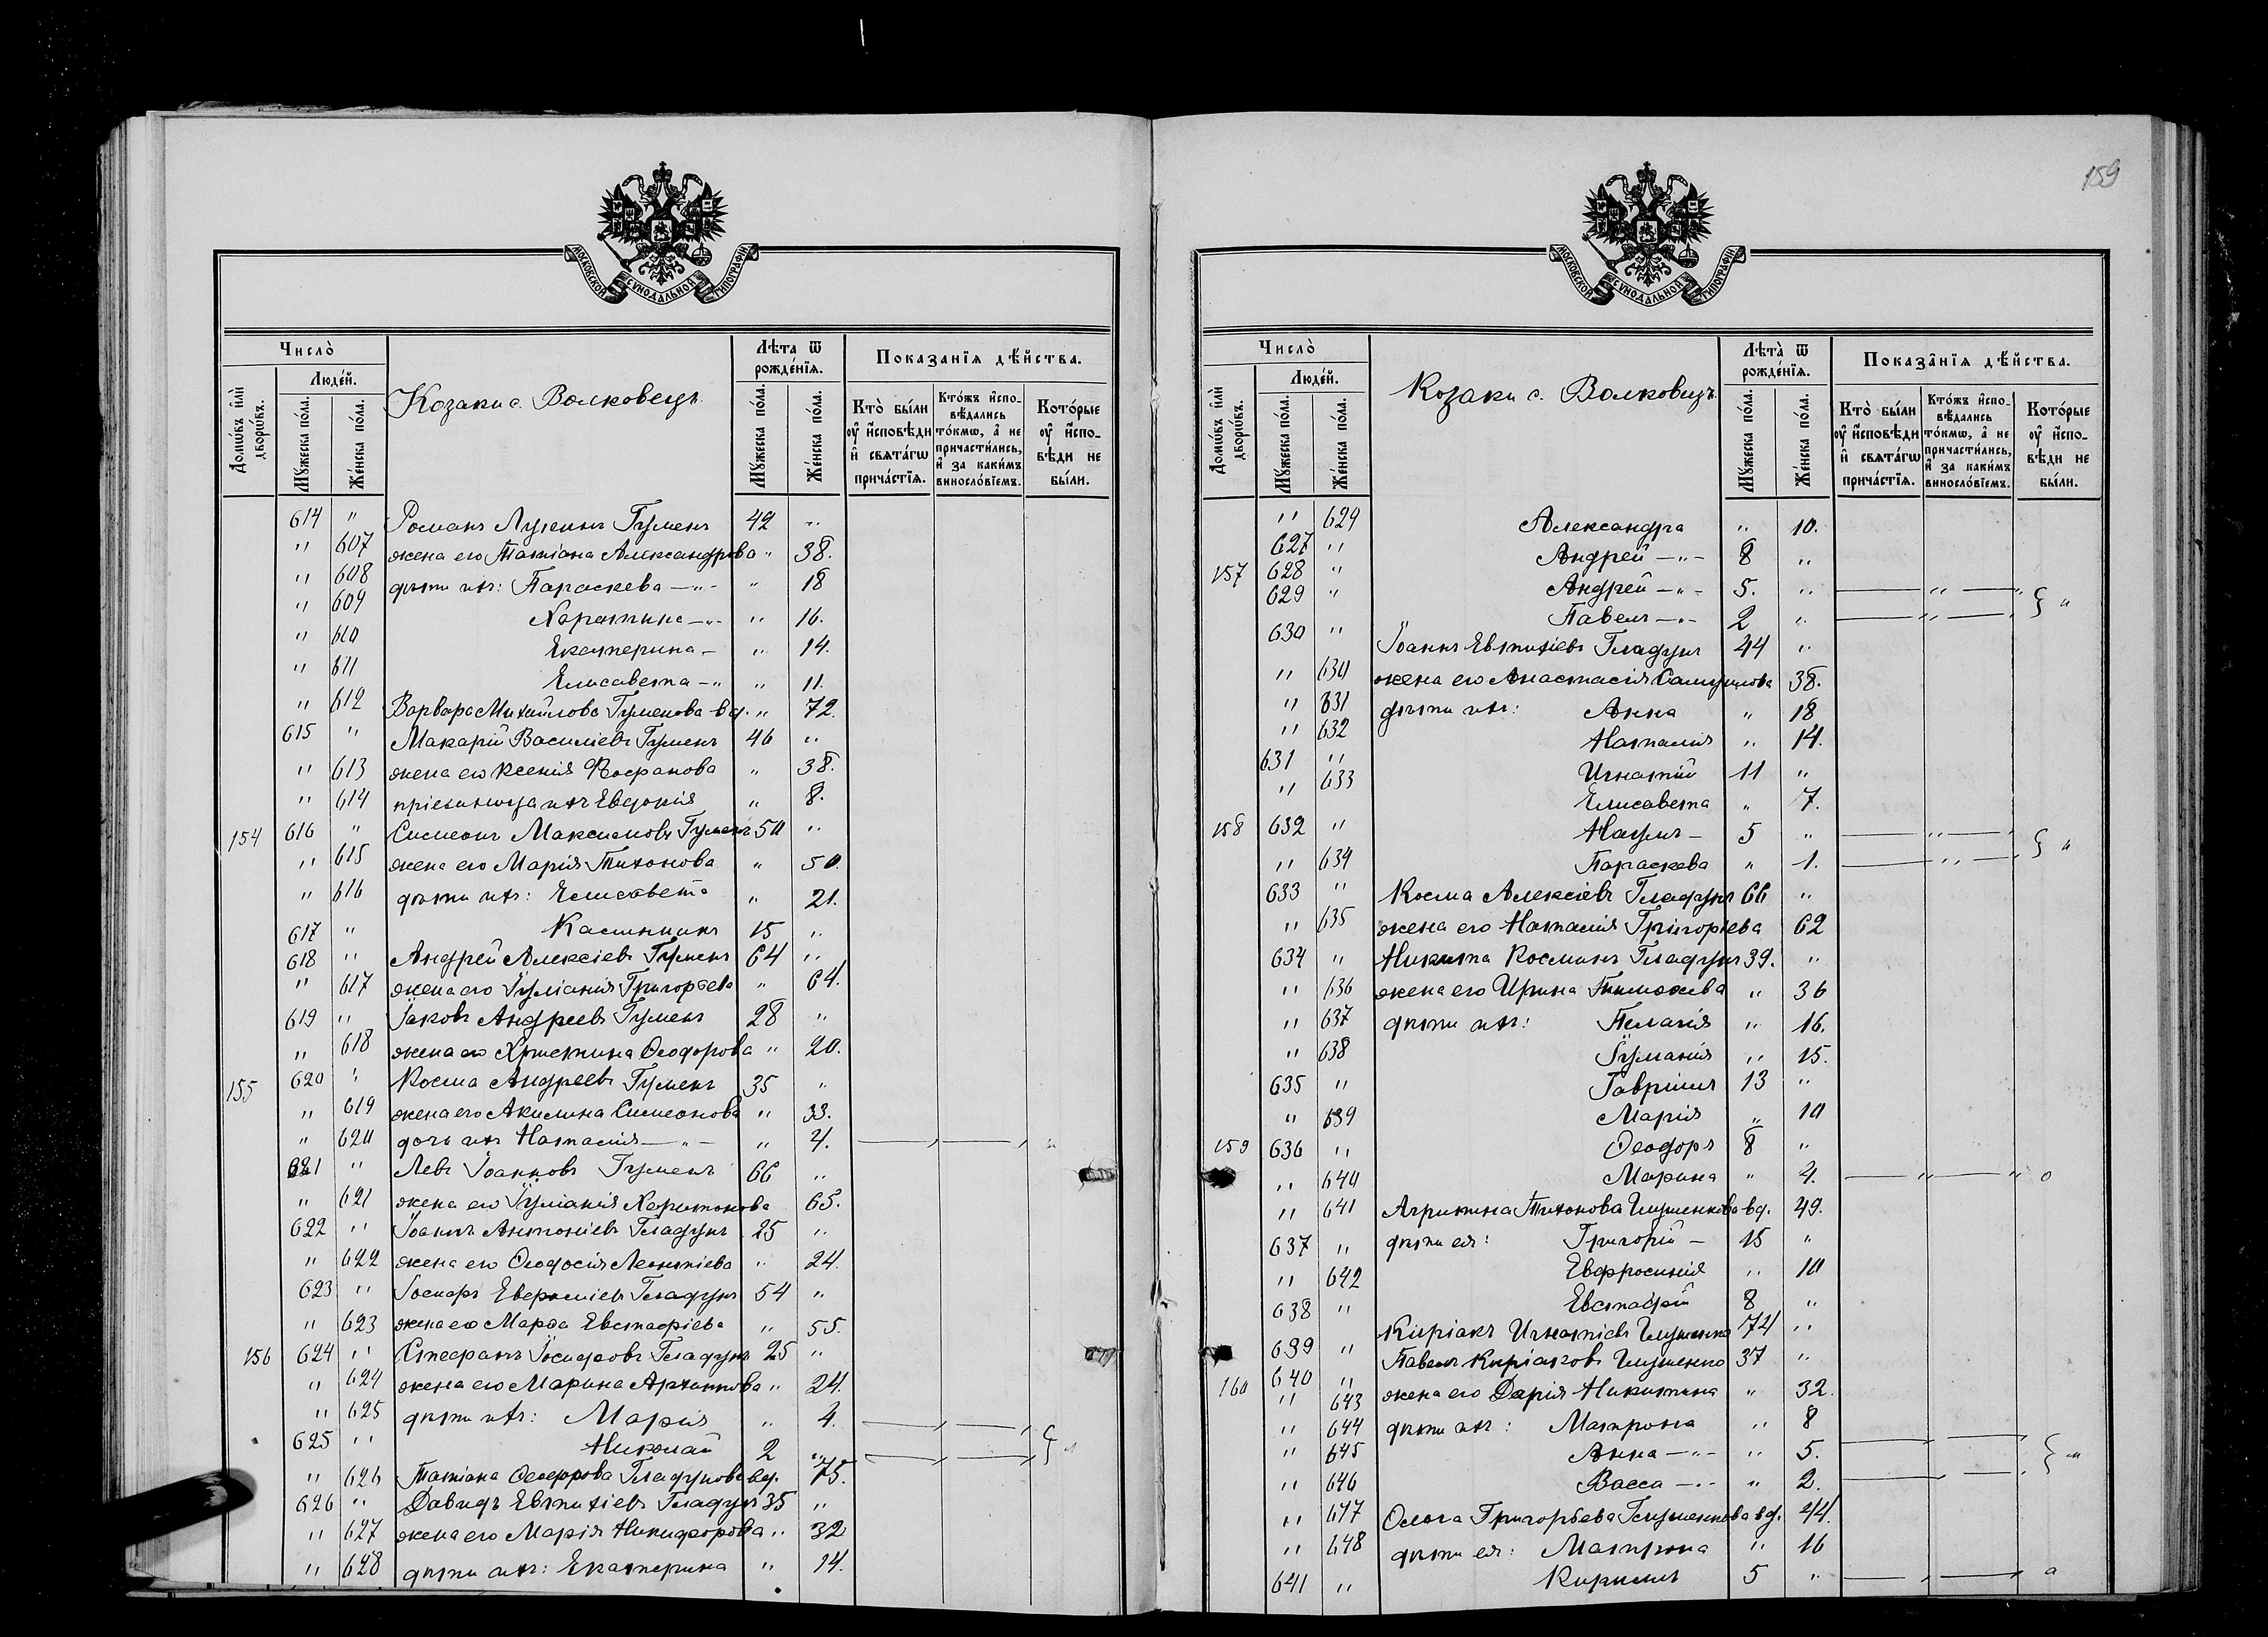 МОСКОВСКОЙ СѴНОДАЛЬНОЙ ТИПОГРАФІИ
Число̀
Людéй.
Домѡ́въ и҆лѝ дворѡ́въ.
Мꙋ́жеска по́ла.
Же́нска по́ла.
Козаки с. Волковецъ.
Лѣ́та ѿ рожде́нїѧ.
Мꙋ́жеска по́ла.
Же́нска по́ла.
Показа̑нїѧ дѣ́йства.
Кто̀ бы́ли оу҆ и҆сповѣди и҆ свѧта́гѡ прича́стїѧ.
Кто́жъ и҆спо-вѣ́дались то́кмѡ, а҆ не причасти́лись, и҆ за каки́мъ винословїемъ.
Кото́рые оу҆ и҆спо-вѣди не бы́ли.
614 " Романъ Лукинъ Гуменъ 42 "
" 607 жена его Татіана Александрова " 38.
" 608 дѣти ихъ: Параскева —"— " 18
" 609 Харитина —"— " 16.
" 610 Екатерина — " 14.
" 611 Елисавета —" " 11.
" 612 Варвара Михайлова Гуменова вд. " 72.
615 " Макарій Василіевъ Гуменъ 46 "
" 613 жена его Ксенія " 38.
" 614 ихъ Евдокія " 8.
154 616 " Симеонъ Максимовъ Гуменъ 50 "
" 615 жена его Марія Тихонова " 50.
" 616 дѣти ихъ: Елисавета " 21.
617 " Каллиникъ 15 "
618 " Андрей Алексіевъ Гуменъ 64 "
" 617 жена его Іуліанія Григорьева " 64.
619 " Іаковъ Андреевъ Гуменъ 28 "
" 618 жена его Христина Ѳеодорова " 20.
155 620 " Косма Андреевъ Гуменъ 35 "
" 619 жена его Акилина Симеонова " 33.
" 620 дочь ихъ Наталія —"— " 4. — " — " "
621 " Левъ Іоанновъ Гуменъ 66 "
" 621 жена его Іуліанія Харитонова 65.
622 " Іоаннъ Антоніевъ Гладунъ 25 "
" 622 жена его Ѳеодосія Леонтіева " 24.
623 " Іосифъ Гладунъ 54 "
" 623 жена его Марѳа Евстафіева " 55.
156 624 " Стефанъ Іосифовъ Гладунъ 25 "
" 624 жена его Марина Архиппова " 24.
" 625 дѣти ихъ: Марія " 4. — " — "
625 " Николай 2 " — " — " "
" 626 Татіана Гладунова вд. 75.
626 " Давидъ Евтихіевъ Гладунъ 35 "
" 627 жена его Марія Никифорова " 32
" 628 дѣти ихъ: Екатерина " 14.
159
МОСКОВСКОЙ СѴНОДАЛЬНОЙ ТИПОГРАФІИ
Число̀
Людéй.
Домѡ́въ и҆лѝ дворѡ́въ.
Мꙋ́жеска по́ла.
Же́нска по́ла.
Козаки с. Волковецъ.
Лѣ́та ѿ рожде́нїѧ.
Мꙋ́жеска по́ла.
Же́нска по́ла.
Показа̑нїѧ дѣ́йства.
Кто̀ бы́ли оу҆ и҆сповѣди и҆ свѧта́гѡ прича́стїѧ.
Кто́жъ и҆спо-вѣ́дались то́кмѡ, а҆ не причасти́лись, и҆ за каки́мъ винословїемъ.
Кото́рые оу҆ и҆спо-вѣди не бы́ли.
" 629 Александра " 10.
627 " Андрей —"— 8 "
157 628 " Андрей —"— 5. " — " — "
629 " Павелъ —"— 2 " — " — " "
630 " Іоаннъ Евтихіевъ Гладунъ 44 "
" 630 жена его Анастасія Самуилова 38.
" 631 дѣти ихъ: Анна " 18
" 632 Наталія " 14.
631 " Игнатій 11 "
" 633 Елисавета " 7.
158 632 " Наумъ — 5 " — " — "
" 634 Параскева " 1. — " — " "
633 " Косма Алексіевъ Гладунъ 66 "
" 635 жена его Наталія Григорьева 62
634 " Никита Косминъ Гладунъ 39. "
" 636 жена его Ирина Тимоѳеева " 36
" 637 дѣти ихъ: Пелагія " 16.
" 638 Іуліанія " 15.
635 " Гавріилъ 13 "
" 639 Марія " 10
159 636 " Ѳеодоръ 8 "
" 640 Марина " 4. — " — " "
" 641 Агрипина Тихонова Глушенкова вд. 49.
637 " дѣти ея: Григорій — 15 "
" 642 Евфросинія " 10
638 " Евстафій 8 "
639 " Киріакъ Игнатіевъ Глушенко 74 "
640 " Павелъ Киріаковъ Глушенко 37 "
160 " 643 жена его Дарія Никитина " 32.
" 644 дѣти ихъ: Матрона " 8
" 645 Анна —"— " 5. — " — "
" 646 Васса —"— " 2. — " — " "
" 647 Ольга Григорьева Глушенкова вд. 44.
" 648 дѣти ея: Матрона " 16
641 " Кириллъ 5 " — " — " "